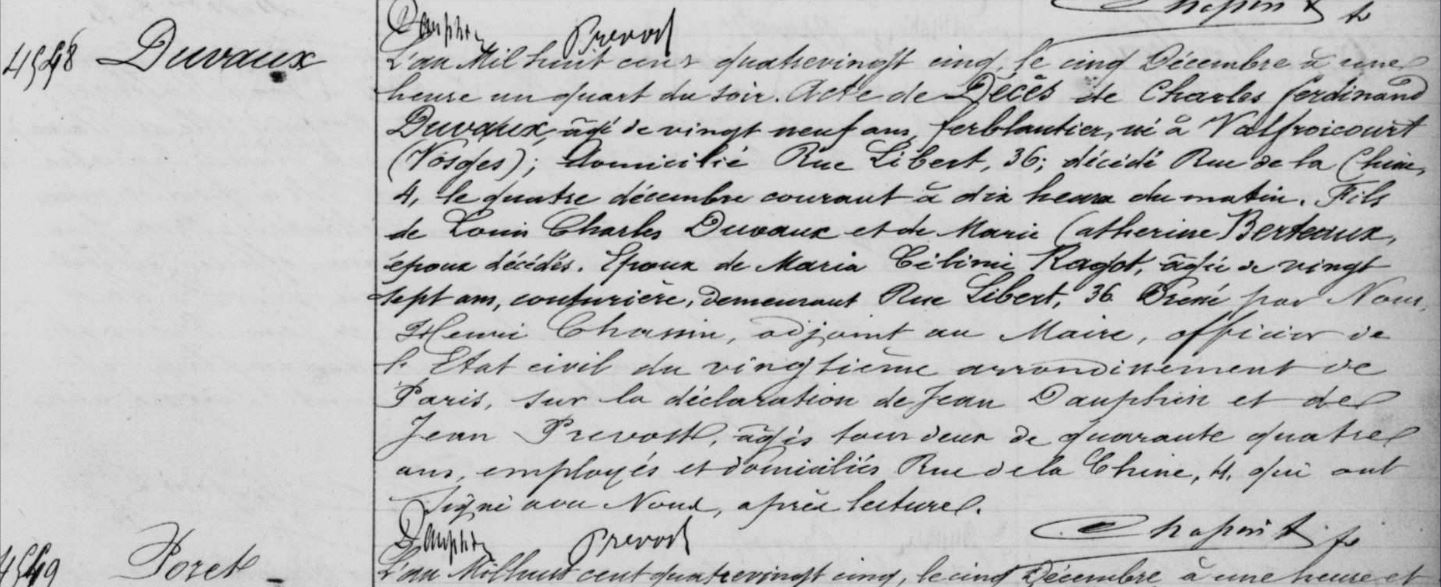 Dauphin Prevost Chapin
4548 Duvaux
L'an Mil huit cent quatrevingt cinq, le cinq Décembre à une
heure un quart du soir. Acte de Décès de Charles ferdinand
Duvaux, âgé de vingt neuf ans, ferblantier, né à Valfroicourt
(Vosges); domicilié Rue Libert, 36; décédé Rue de la Chine,
4, le quatre décembre courant à dix heures du matin. Fils
de Louis Charles Duvaux et de Marie Catherine Berteaux,
époux décédés. Epoux de Maria Céline Ragot, âgée de vingt
sept ans, couturière, demeurant Rue Libert, 36. Dressé par Nous,
Henri Chapin, adjoint au Maire, officier de
l'Etat civil du vingtième arrondissement de
Paris, sur la déclaration de Jean Dauphin et de
Jean Prevost, âgés tous deux de quarante quatre
ans, employés et domiciliés Rue de la Chine, 4, qui ont
signé avec Nous, après lecture.
Dauphin Prevost Chapin
4549 Poret
L'an Mil huit cent quatrevingt cinq, le cinq Décembre à une heure et